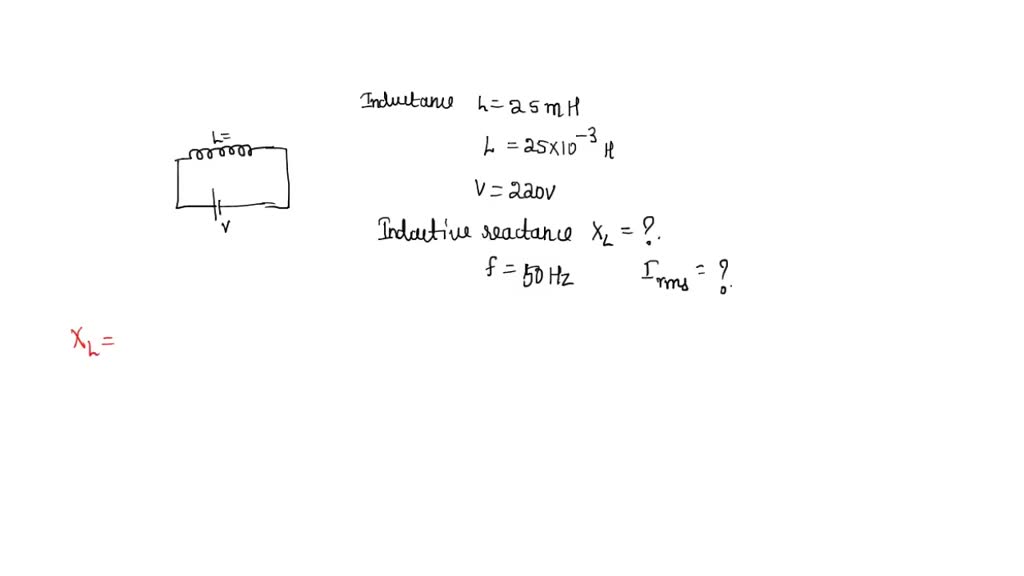 Inductance L = 25mH
L =
L = 25×10⁻³ H
V = 220V
V
Inductive reactance X_L = ?.
f = 50 Hz I_rms = ?.
X_L =